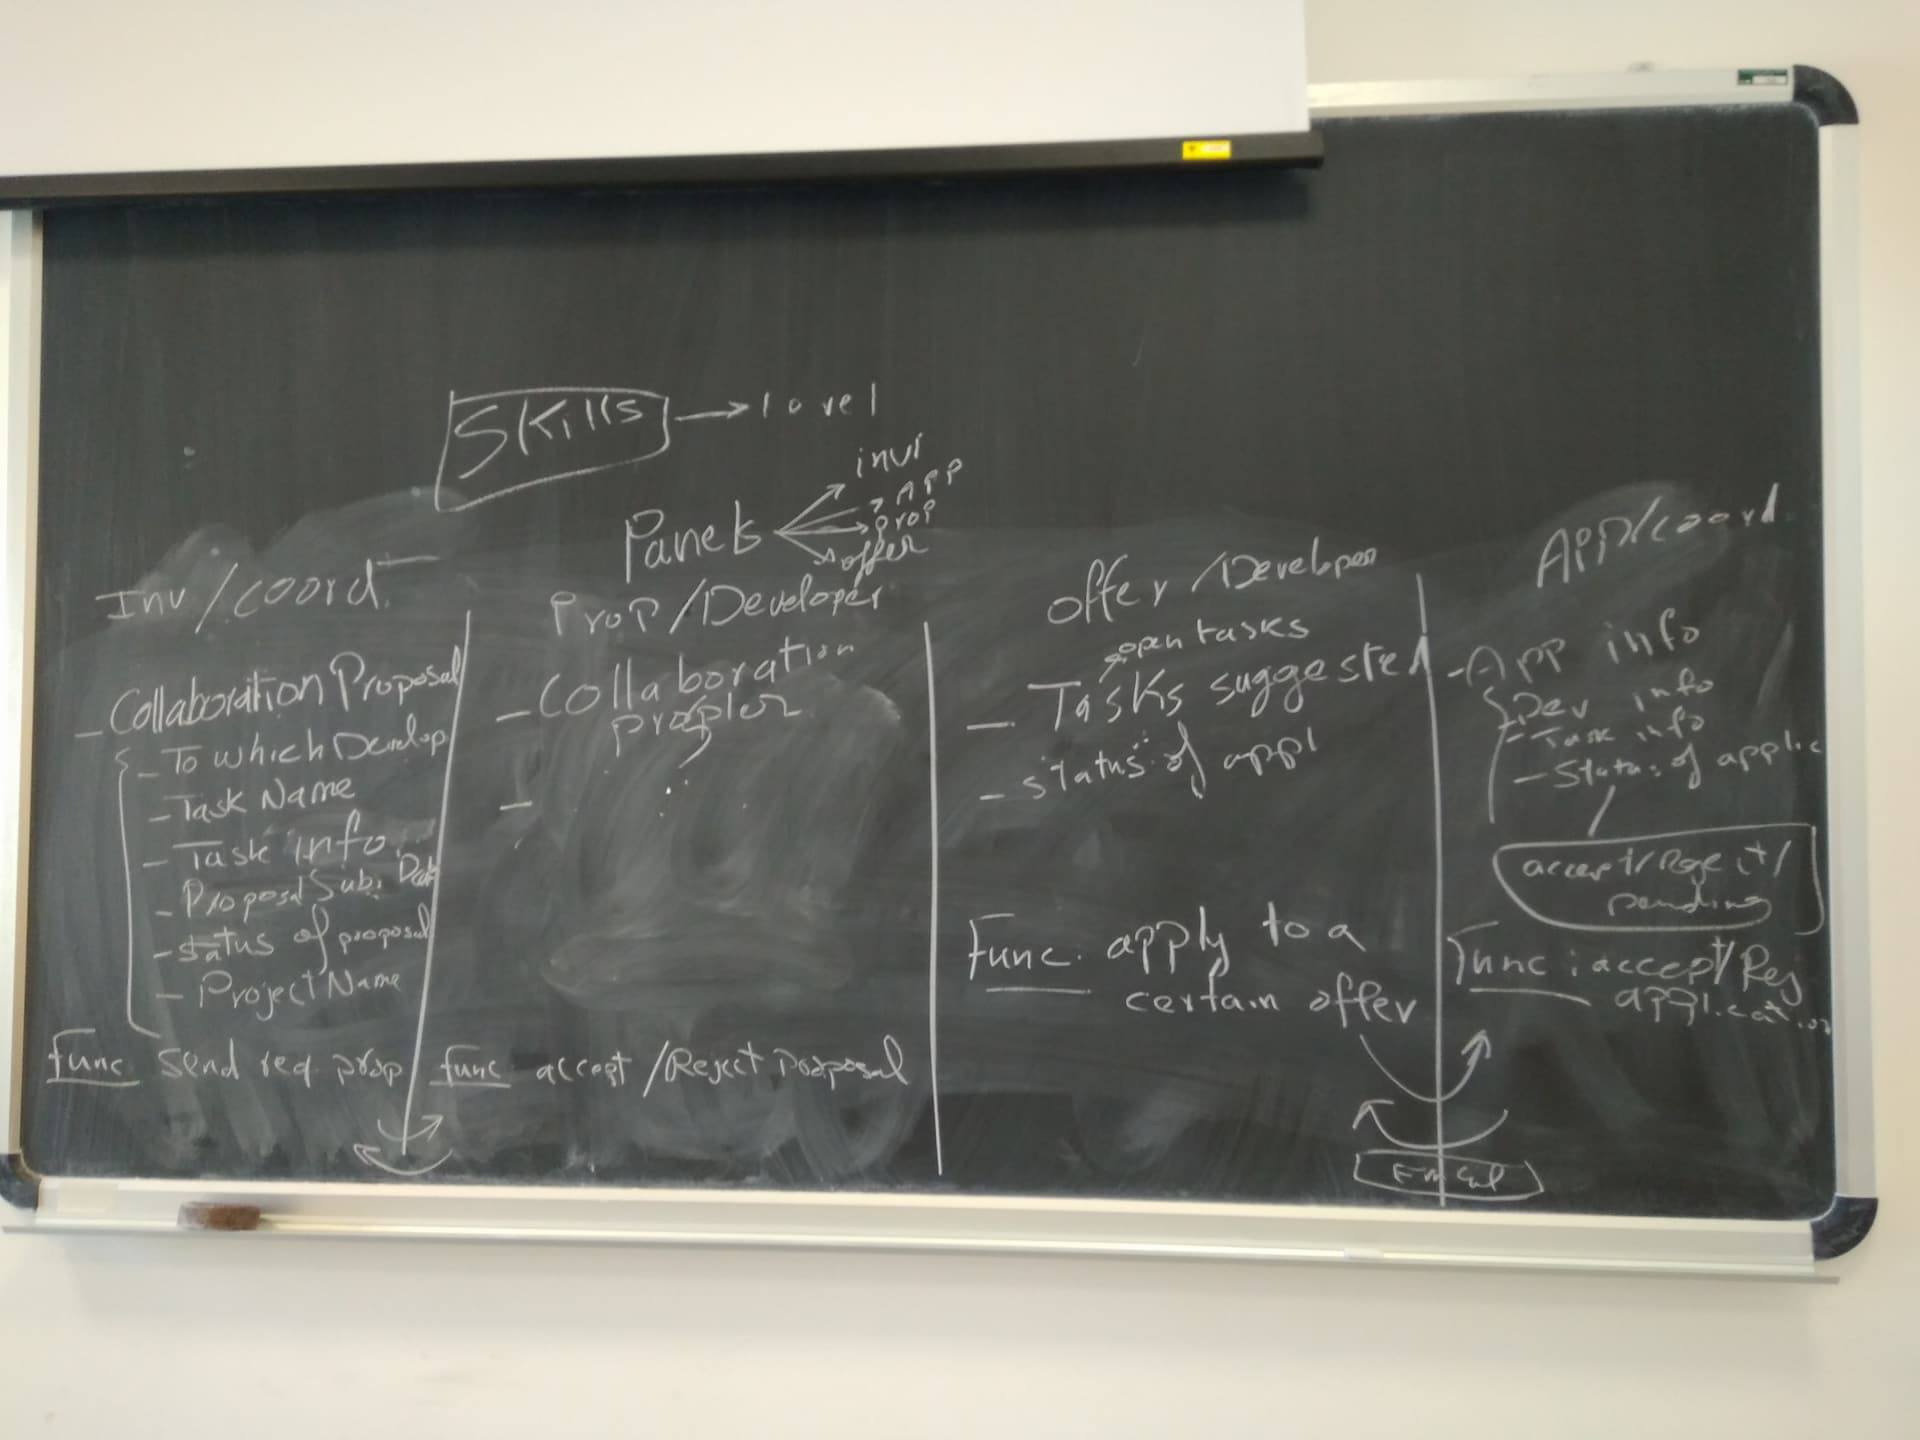 Skills → level
Panels
invi
APP
prop
offer
Inv/coord.
- Collaboration Proposal
- To which Develop.
- Task Name
- Task info.
- Proposal Sub. Date
- status of proposal
- Project Name
Func send req. prop
Prop/Developer
- Collaboration
-
Func accept/Reject Proposal
offer/Developer
open tasks
- Tasks suggested
- status of appl
Func. apply to a
certain offer
App/coord.
- App info
- Dev info
- Task info
- Status of applic
accept/Reject/
pending
Func: accept/Rej
application
Email